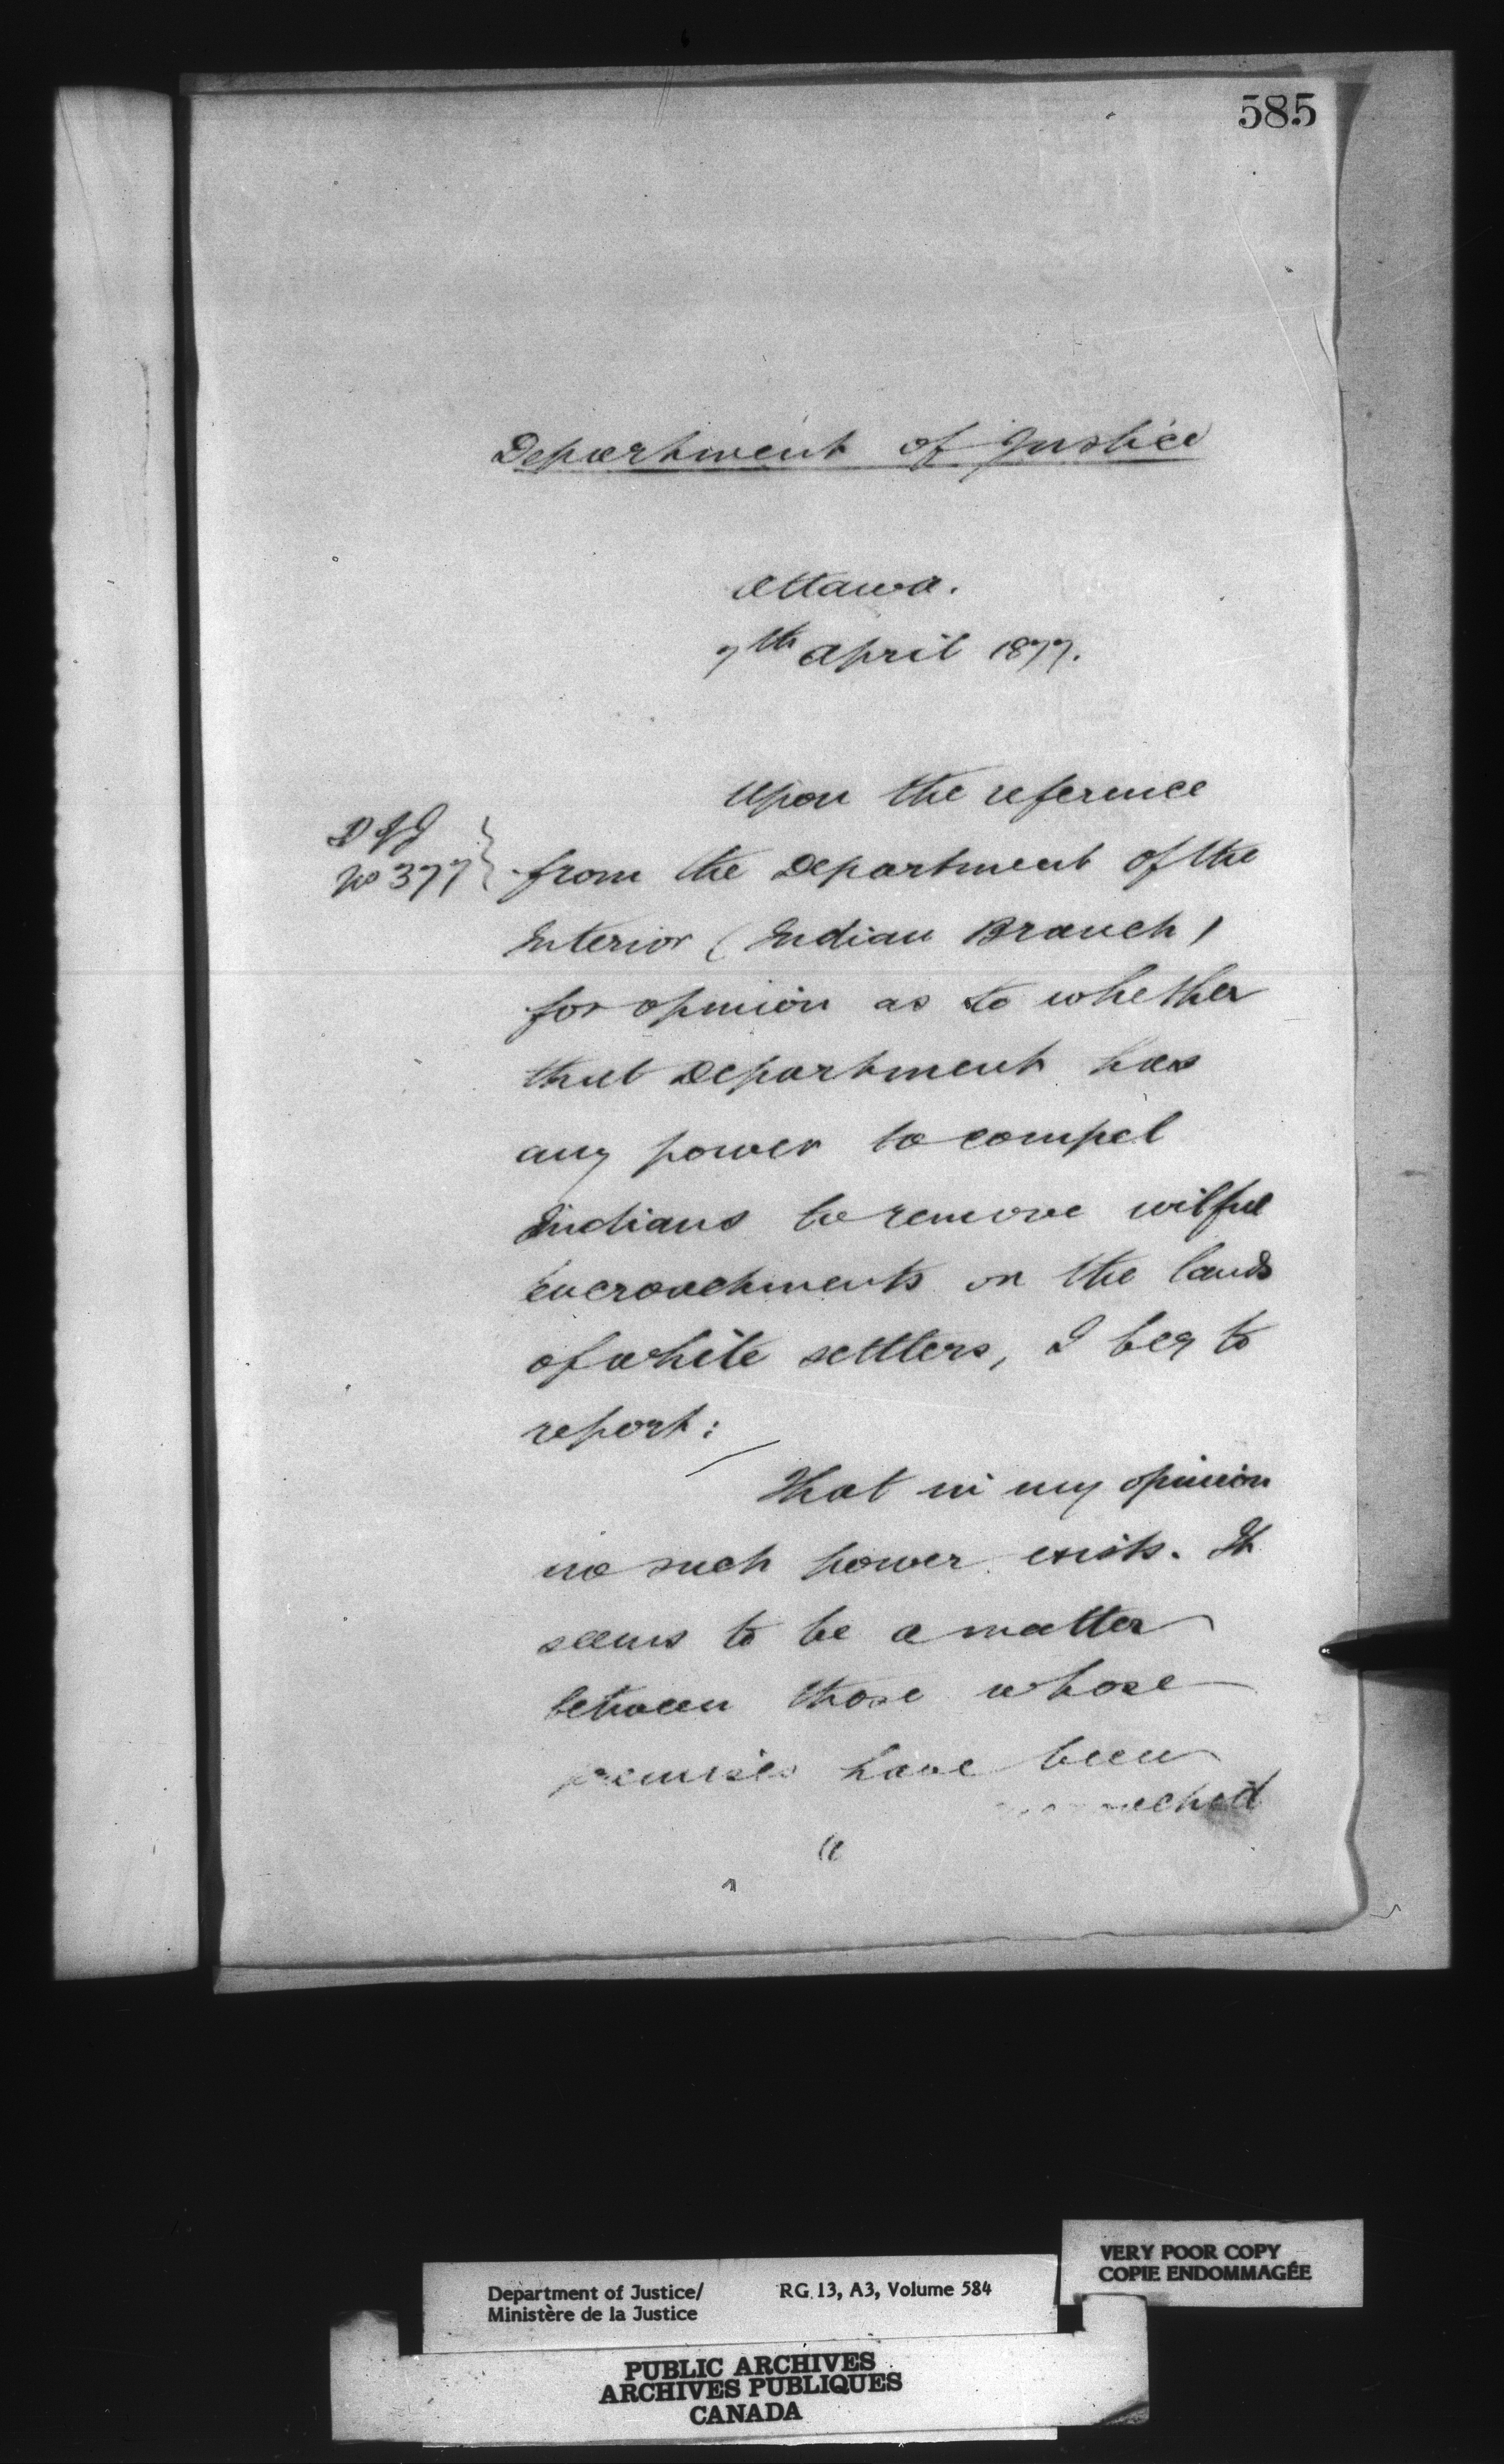 585
Department of Justice
Ottawa.
7th April 1877.
Upon the reference
No 377
from the Department of the
Interior (Indian Branch)
for opinion as to whether
that Department has
any power to compel
Indians to remove wilful
encroachments on the lands
of white settlers, I beg to
report:
That in my opinion
no such power exists. It
seems to be a matter
between those whose
premises have been
Department of Justice/
Ministère de la Justice
RG 13, A3, Volume 584
VERY POOR COPY
COPIE ENDOMMAGÉE
PUBLIC ARCHIVES
ARCHIVES PUBLIQUES
CANADA